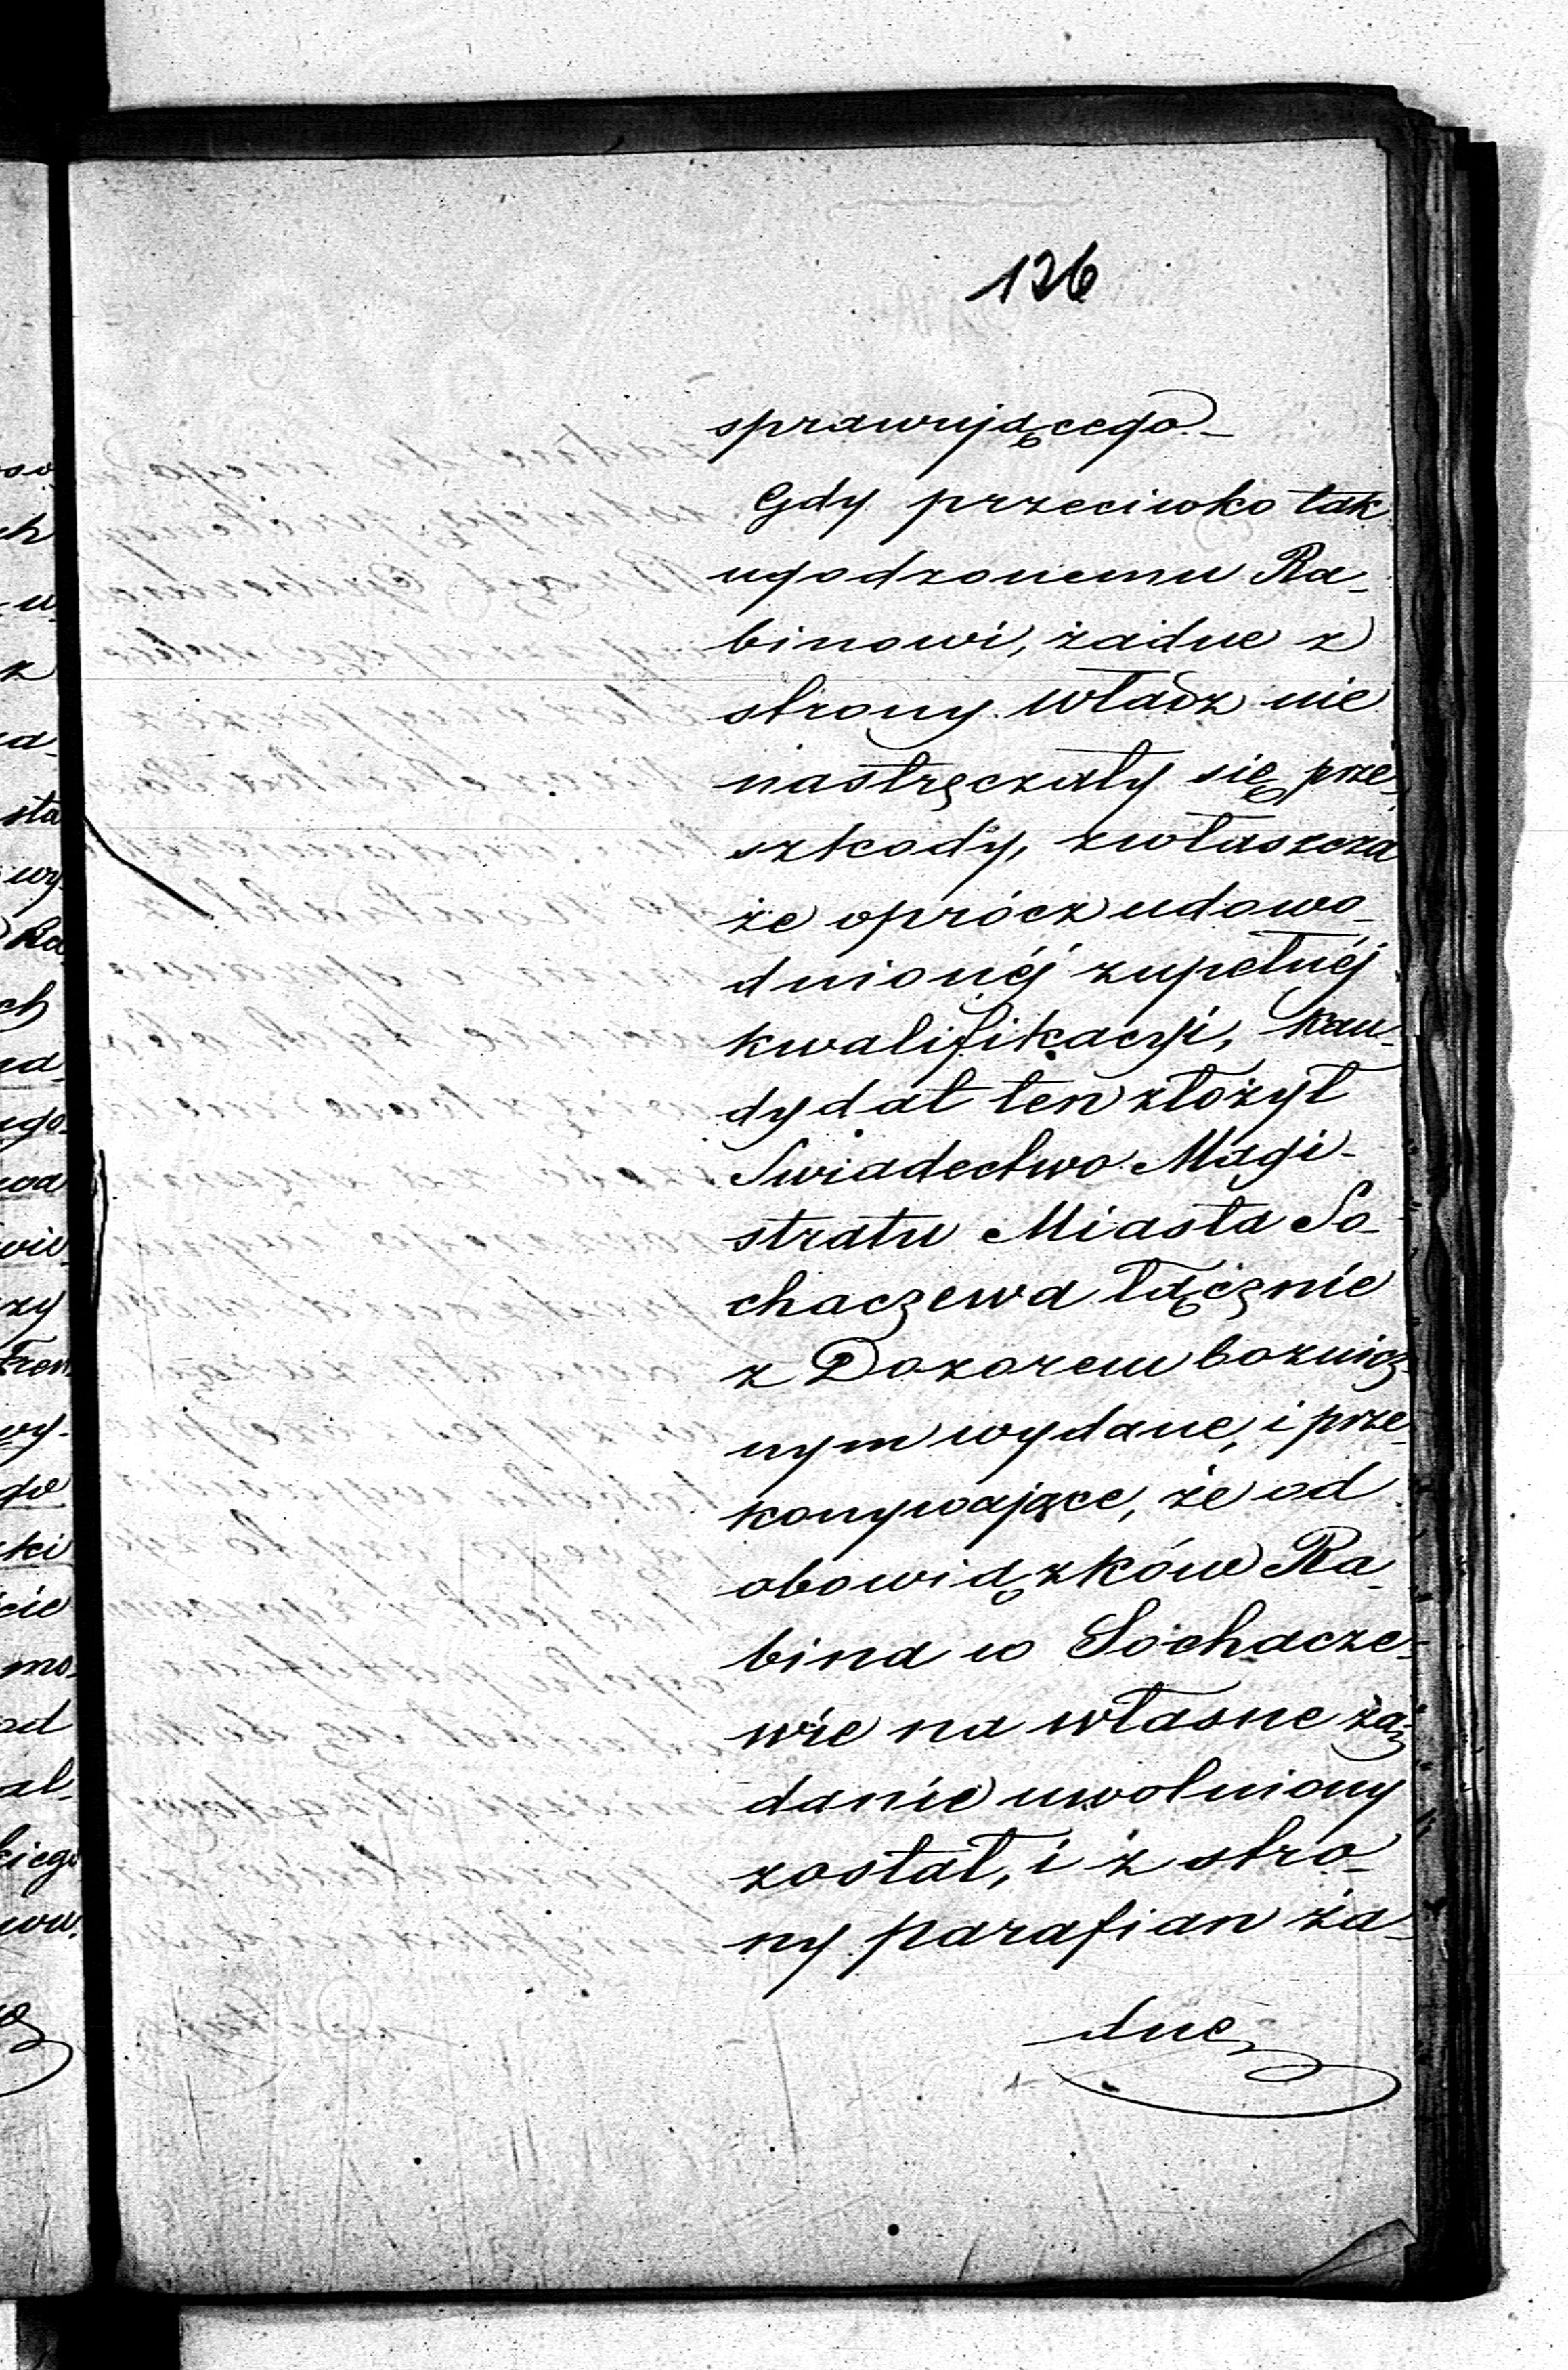 126
sprawującego.
Gdy przeciwko tak
ugodzonemu Ra-
binowi, żadne z
strony władz nie
nastręczały się prze-
szkody, zwłaszcza
że oprócz udowo-
dnionéj zupełnéj
kwalifikacyi, kan-
dydat ten złożył
Swiadectwo Magi-
stratu Miasta So-
chaczewa łącznie
z Dozorem bożnicz-
nym wydane, i prze-
konywające, że od
obowiązków Ra-
bina w Sochacze-
wie na własne żą-
danie uwolniony
został, i z stro-
ny parafian ża-
dne